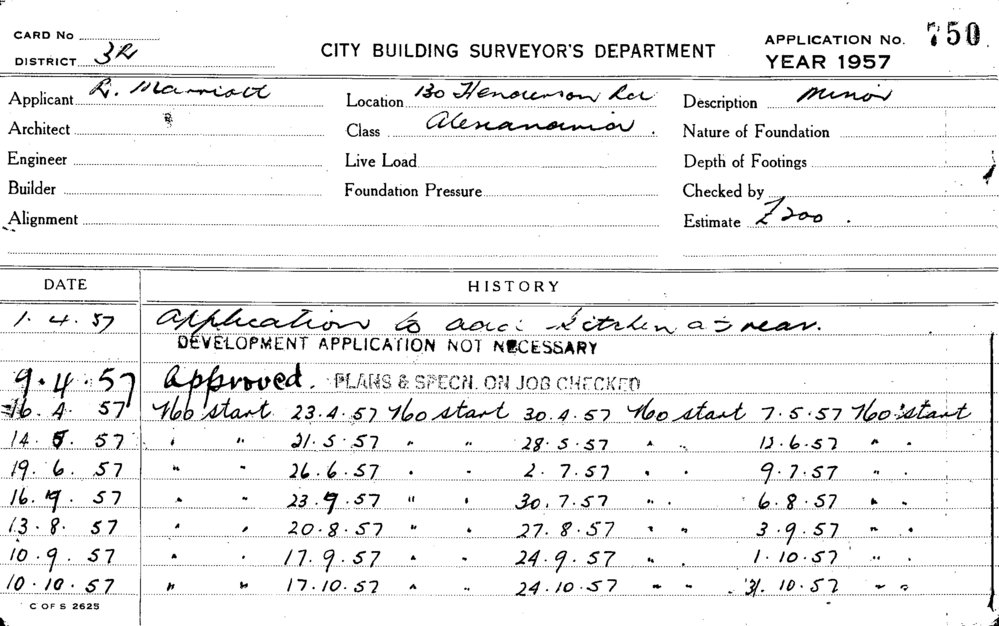 CARD No
DISTRICT 3R
CITY BUILDING SURVEYOR'S DEPARTMENT
APPLICATION No. 750
YEAR 1957
Applicant R. Marriott
Location 130 Henderson Rd
Description Minor
Architect
Class Alexandria.
Nature of Foundation
Engineer
Live Load
Depth of Footings
Builder
Foundation Pressure
Checked by
Alignment
Estimate £200.
DATE HISTORY
1.4.57 Application to add kitchen at rear.
DEVELOPMENT APPLICATION NOT NECESSARY
9.4.57 Approved. PLANS & SPECN. ON JOB CHECKED
16.4.57 No start 23.4.57 No start 30.4.57 No start 7.5.57 No start
14.5.57 " " 21.5.57 " " 28.5.57 " " 12.6.57 " "
19.6.57 " " 26.6.57 " " 2.7.57 " " 9.7.57 " "
16.9.57 " " 23.9.57 " " 30.7.57 " " 6.8.57 " "
13.8.57 " " 20.8.57 " " 27.8.57 " " 3.9.57 " "
10.9.57 " " 17.9.57 " " 24.9.57 " " 1.10.57 " "
10.10.57 " " 17.10.57 " " 24.10.57 " " 31.10.57 " "
C OF S 2625